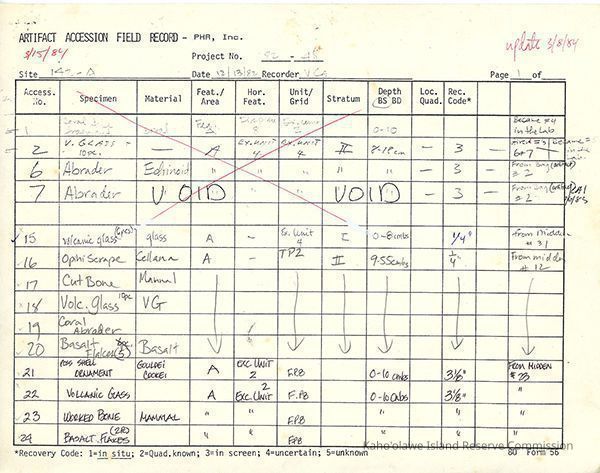 ARTIFACT ACCESSION FIELD RECORD - PHR, Inc.
3/15/84
update 3/8/84
Project No. 82 -
Site 142-A Date 12/13/82 Recorder Page 1 of
Access. No. Specimen Material Feat./ Area Hor. Feat. Unit/ Grid Stratum Depth BS BD Loc. Quad. Rec. Code*
1 0-10 became #4 in the lab
2 V. GLASS - 10pc. — A Ex. UNIT 4 Ex. UNIT 4 II 7-18cm — 3 —
6 Abrader Echinoid " " " " — 3 — From bag # 2
7 Abrader VOID " " VOID — 3 — From bag # 2
15 volcanic glass glass A - Ex. Unit 4 I 0-8cmbs 1/4" from Midden #31
16 Ophi Scrape Cellana A - TP2 II 9-55cmbs 1/4" From midden # 12
17 Cut Bone Mammal
18 Volc. glass 10pc VG
19 Coral Abrader
20 Basalt Flakes (5) Basalt
21 SHELL ORNAMENT A EXC. UNIT 2 F.PB 0-10 cmbs 3 1/8" FROM MIDDEN # 23
22 VOLCANIC GLASS A EXC. UNIT 2 F.PB 0-10cmbs 3 1/8" "
23 WORKED BONE MAMMAL " " FPB " " "
24 BASALT FLAKES " " FPB " "
*Recovery Code: 1=in situ; 2=Quad.known; 3=in screen; 4=uncertain; 5=unknown 80 Form 56
Kaho'olawe Island Reserve Commission